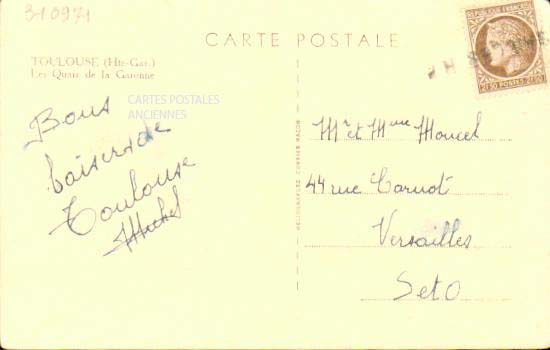 310971
CARTE POSTALE
TOULOUSE (Hte-Gar.)
Les Quais de la Garonne
CARTES POSTALES
ANCIENNES
Bons
baisers de
Toulouse
Michel
Mr et Mme Moucel
44 rue Carnot
Versailles
S et O
2F50 POSTES 2F50